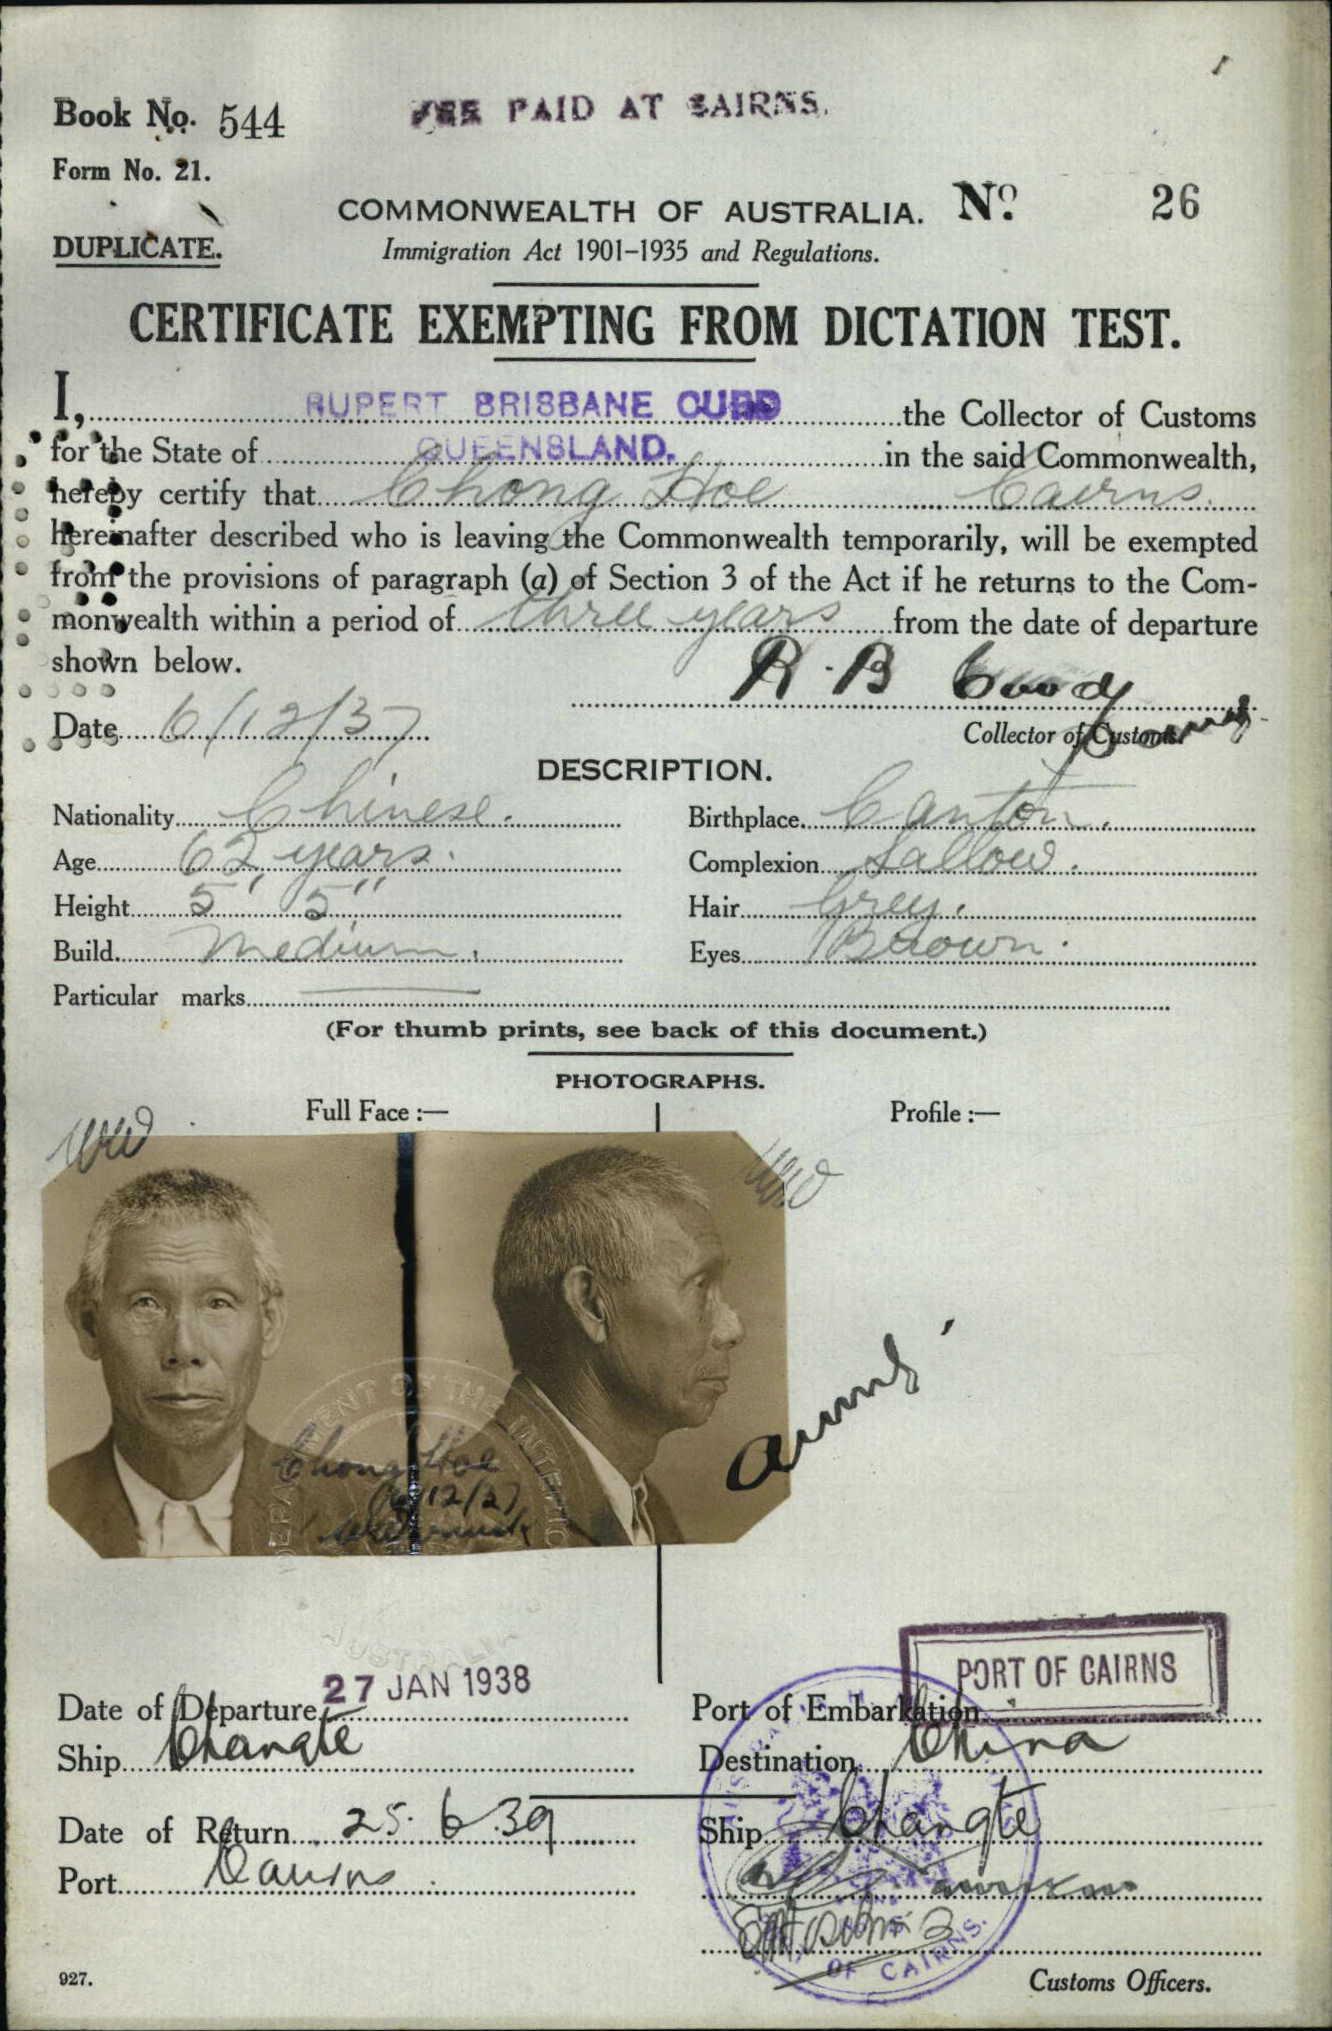 FEE PAID AT CAIRNS.
Book No. 544
Form No. 21.
COMMONWEALTH OF AUSTRALIA. No. 26
DUPLICATE.
Immigration Act 1901-1935 and Regulations.
CERTIFICATE EXEMPTING FROM DICTATION TEST.
I, RUPERT BRISBANE CUDD the Collector of Customs
for the State of QUEENSLAND. in the said Commonwealth,
hereby certify that Chong Hoe Cairns.
hereinafter described who is leaving the Commonwealth temporarily, will be exempted
from the provisions of paragraph (a) of Section 3 of the Act if he returns to the Com-
monwealth within a period of three years from the date of departure
shown below.
R. B
Date 6/12/37
Collector of Customs.
DESCRIPTION.
Nationality Chinese. Birthplace Canton.
Age 62 years. Complexion Sallow.
Height 5' 5" Hair Grey.
Build Medium. Eyes Brown.
Particular marks
(For thumb prints, see back of this document.)
PHOTOGRAPHS.
Full Face :— Profile :—
DEPARTMENT OF THE INTERIOR
Chong Hoe
AUSTRALIA
PORT OF CAIRNS
Date of Departure 27 JAN 1938 Port of Embarkation
Ship Changte Destination China
Date of Return 25. 6. 39 Ship Changte
Port Cairns
OF CAIRNS.
927. Customs Officers.